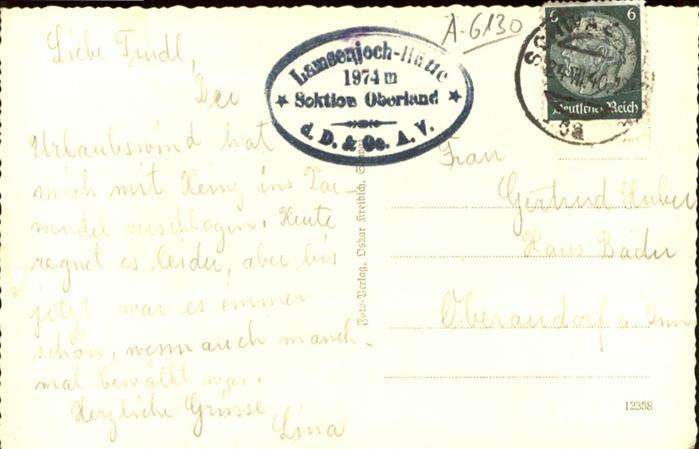 Liebe Trudl,
Der
Urlaubswind hat
mich mit Heinz ins Kar-
wendel verschlagen. Heute
regnet es leider, aber bis
jetzt war es immer
schön, wenn auch manch-
mal bewölkt war.
Herzliche Grüsse
Lina
Lamsenjoch-Hütte
1974 m
Sektion Oberland
d. D. & Oe. A. V.
A-6130
SCHWAZ
6 6
Deutsches Reich
Foto-Verlag, Oskar Kreibich,
Frau
Gertrud Huber
Haus Bader
Oberaudorf a. Inn
12358